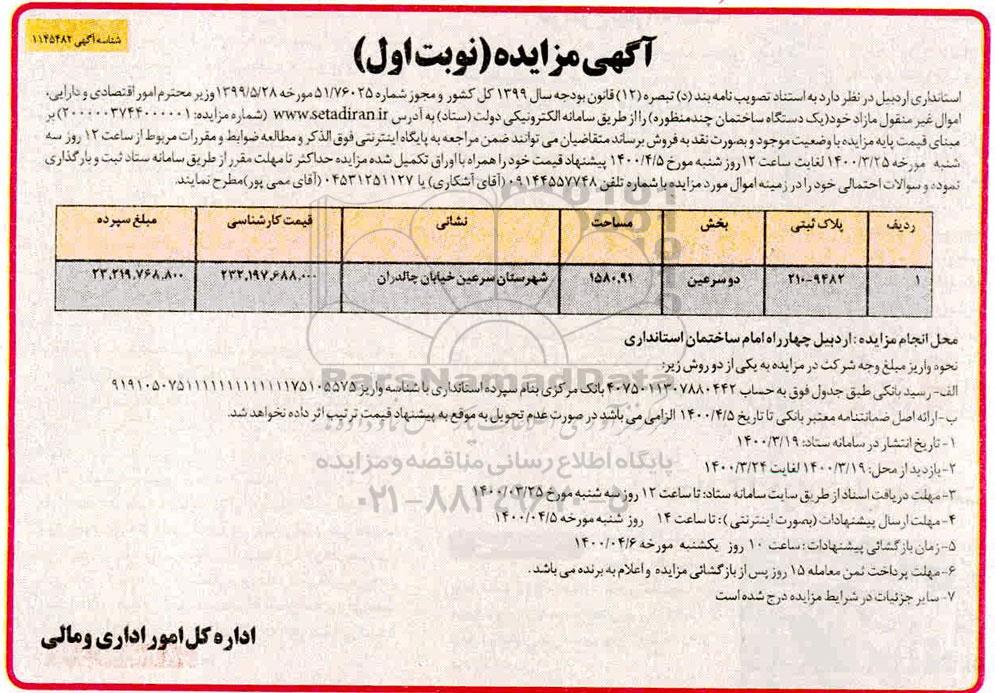 شناسه آگهی ۱۱۴۵۴۸۲
آگهی مزایده (نوبت اول)
استانداری اردبیل در نظر دارد به استناد تصویب نامه بند (د) تبصره (۱۲) قانون بودجه سال ۱۳۹۹ کل کشور و مجوز شماره ۵۱/۷۶۰۲۵ مورخه ۱۳۹۹/۵/۲۸ وزیر محترم امور اقتصادی و دارایی،
اموال غیر منقول مازاد خود (یک دستگاه ساختمان چند منظوره) را از طریق سامانه الکترونیکی دولت (ستاد) به آدرس www.setadiran.ir (شماره مزایده: ۲۰۰۰۰۰۳۷۴۴۰۰۰۰۰۱) بر
مبنای قیمت پایه مزایده با وضعیت موجود و بصورت نقد به فروش برساند، متقاضیان می توانند ضمن مراجعه به پایگاه اینترنتی فوق الذکر و مطالعه ضوابط و مقررات مربوط از ساعت ۱۲ روز سه
شنبه مورخه ۱۴۰۰/۳/۲۵ لغایت ساعت ۱۲ روز شنبه مورخ ۱۴۰۰/۴/۵ پیشنهاد قیمت خود را همراه با اوراق تکمیل شده مزایده حداکثر تا مهلت مقرر از طریق سامانه ستاد ثبت و بارگذاری
نموده و سوالات احتمالی خود را در زمینه اموال مورد مزایده با شماره تلفن ۰۹۱۴۴۵۵۷۷۴۸ (آقای آشکاری) یا ۰۴۵۳۱۲۵۱۱۲۷ (آقای ممی پور) مطرح نمایند.
ردیف پلاک ثبتی بخش مساحت نشانی قیمت کارشناسی مبلغ سپرده
۱ ۲۱۰-۹۴۸۲ دو سرعین ۱۵۸۰,۹۱ شهرستان سرعین خیابان چالدران ۲۳۲,۱۹۷,۶۸۸,۰۰۰ ۲۳,۲۱۹,۷۶۸,۸۰۰
محل انجام مزایده: اردبیل چهارراه امام ساختمان استانداری
نحوه واریز مبلغ وجه شرکت در مزایده به یکی از دو روش زیر:
الف- رسید بانکی طبق جدول فوق به حساب ۴۰۷۵۰۱۱۳۰۷۸۸۰۴۴۲ بانک مرکزی بنام سپرده استانداری با شناسه واریز
ب- ارائه اصل ضمانتنامه معتبر بانکی تا تاریخ ۱۴۰۰/۴/۵ الزامی می باشد در صورت عدم تحویل به موقع به پیشنهاد قیمت ترتیب اثر داده نخواهد شد.
۱- تاریخ انتشار در سامانه ستاد: ۱۴۰۰/۳/۱۹
۲- بازدید از محل: ۱۴۰۰/۳/۱۹ لغایت ۱۴۰۰/۳/۲۴
۳- مهلت دریافت اسناد از طریق سایت سامانه ستاد: تا ساعت ۱۲ روز سه شنبه مورخ ۱۴۰۰/۰۳/۲۵
۴- مهلت ارسال پیشنهادات (بصورت اینترنتی): تا ساعت ۱۴ روز شنبه مورخه ۱۴۰۰/۰۴/۵
۵- زمان بازگشائی پیشنهادات: ساعت ۱۰ روز یکشنبه مورخه ۱۴۰۰/۰۴/۶
۶- مهلت پرداخت ثمن معامله ۱۵ روز پس از بازگشائی مزایده و اعلام به برنده می باشد.
۷- سایر جزئیات در شرایط مزایده درج شده است
اداره کل امور اداری و مالی
ParsNamadData
پایگاه اطلاع رسانی مناقصه و مزایده